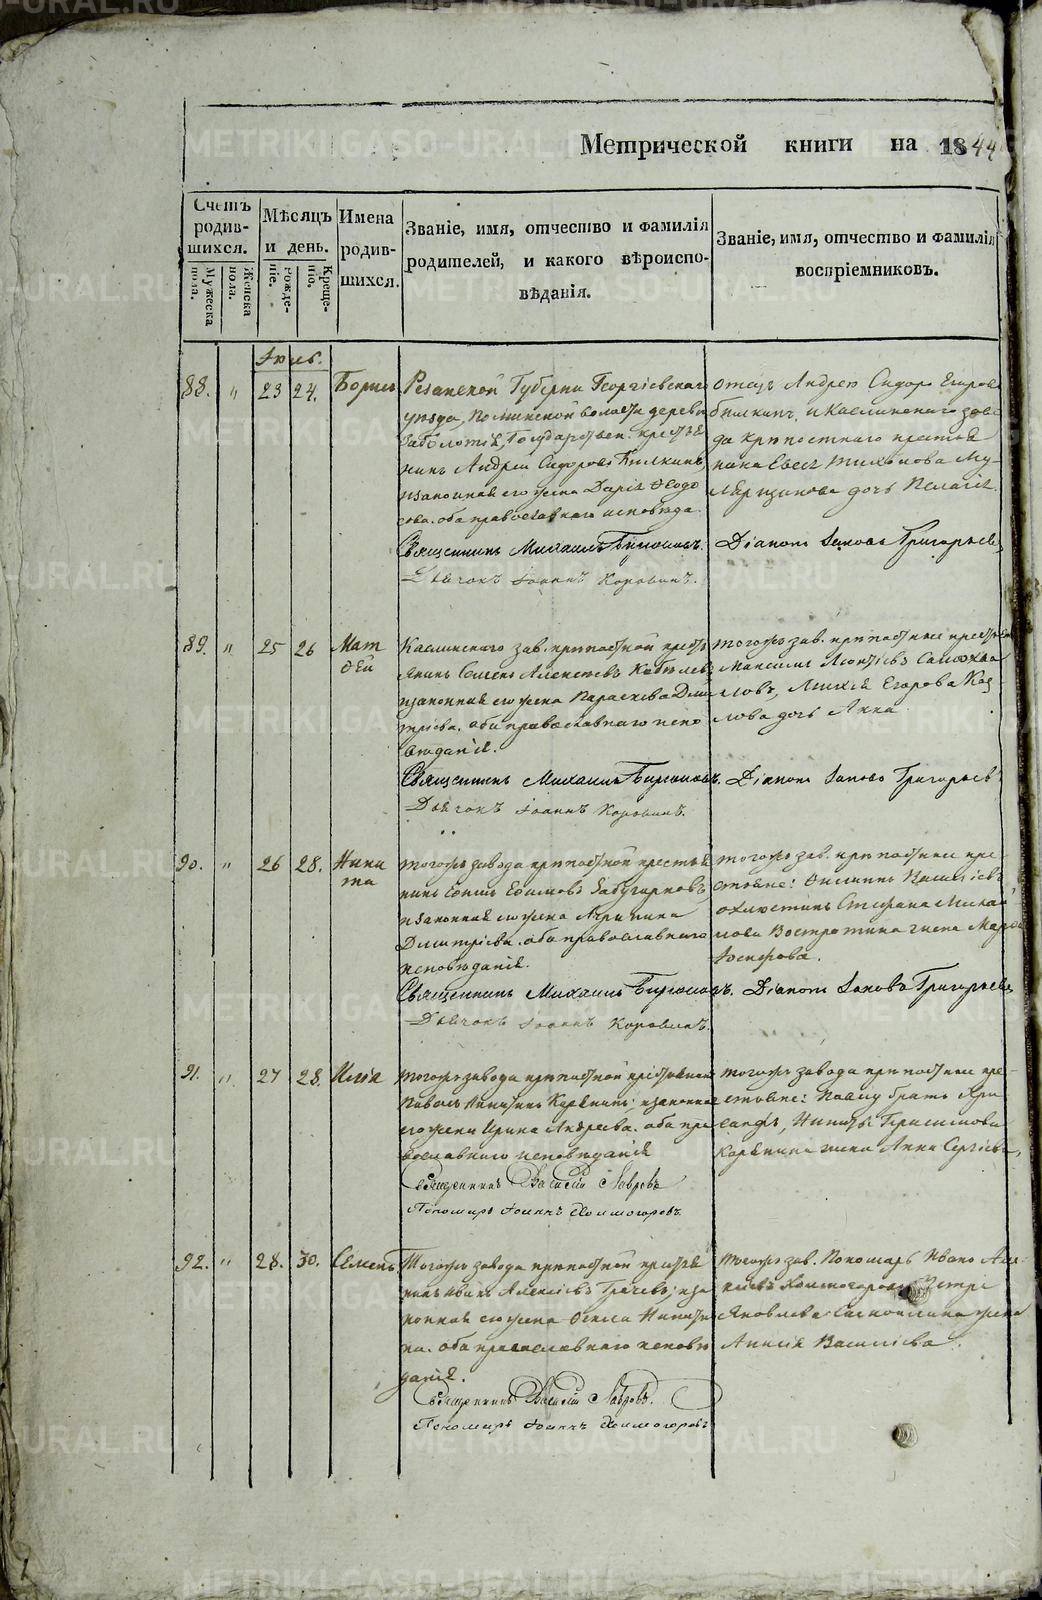 METRIKI.GASO-URAL.RU
Метрической книги на 1844
Счетъ родив-шихся.
Мужеска пола.
Женска пола.
Мѣсяцъ и день.
Рожде-нiе.
Креще-нiю.
Имена родив-шихся.
Званiе, имя, отчество и фамилiя
родителей, и какого вѣроиспо-
вѣданiя.
Званiе, имя, отчество и фамилiя
воспрiемниковъ.
Iюль.
88. " 23 24. Борисъ
Губернiи Георгiевскаго
уѣзда, волости деревни
Государствен. крестья
нинъ Андрей Сидоровъ
и законная его жена Дарiя Ѳеодо
това. оба православнаго исповѣда.
Священникъ Михаилъ
Дьячокъ Iоаннъ Коровинъ.
отецъ Андрею Сидоръ Егоровъ
и Каслинскаго заво
да крѣпостнаго крестья
нина Тихонова Му-
дочь Пелагiя.
Дiаконъ Iаковъ Григорьевъ
89. " 25 26 Мат
ѳей
Каслинскаго зав. крѣпостной кресть
янинъ Семенъ Алексѣевъ
и законная его жена Параскева Дми
трiева. оба православнаго испо
вѣданiя.
Священникъ Михаилъ
Дьячокъ Iоаннъ Коровинъ.
тогожъ зав. крѣпостные крестьяне
Максимъ Леонтiевъ
ловъ, Егорова Коз
лова дочь Анна
Дiаконъ Iаковъ Григорьевъ
90. " 26 28. Ники
та
тогожъ завода крѣпостной крестья
нинъ Ефимовъ
и законная его жена Агрипина
Дмитрiева. оба православнаго
исповѣданiя.
Священникъ Михаилъ
Дьячокъ Iоаннъ Коровинъ.
тогожъ зав. крѣпостные кре-
стьяне: Василiевъ
Стефана Михай
лова Востротина жена Марѳа
Iосифова.
Дiаконъ Iаковъ Григорьевъ
91. " 27 28. Илiя
тогожъ завода крѣпостной крестьянинъ
Павелъ Никитинъ Карѣлинъ; и законная
его жена Ирина Андреева. оба пра
вославнаго исповѣданiя
Священникъ Василiй Лавровъ
Пономарь Iоаннъ Холмогоровъ.
тогожъ завода крѣпостные кре-
стьяне: Павлу братъ Хри
санфъ, Никиты Герасимова
Карѣлина жена Анна Сергiева,
92. " 28. 30. Семенъ
Тогожъ завода крѣпостной крестья
нинъ Иванъ Алексiевъ Грачевъ; и за
конная его жена Никити
на. оба православнаго исповѣ
данiя.
Священникъ Василiй Лавровъ.
Пономарь Iоаннъ Холмогоровъ
тогожъ зав. Пономарь Иванъ Але
ксiевъ Холмогоровъ, Петра
Яковлева жена
Анисiя Василiева.